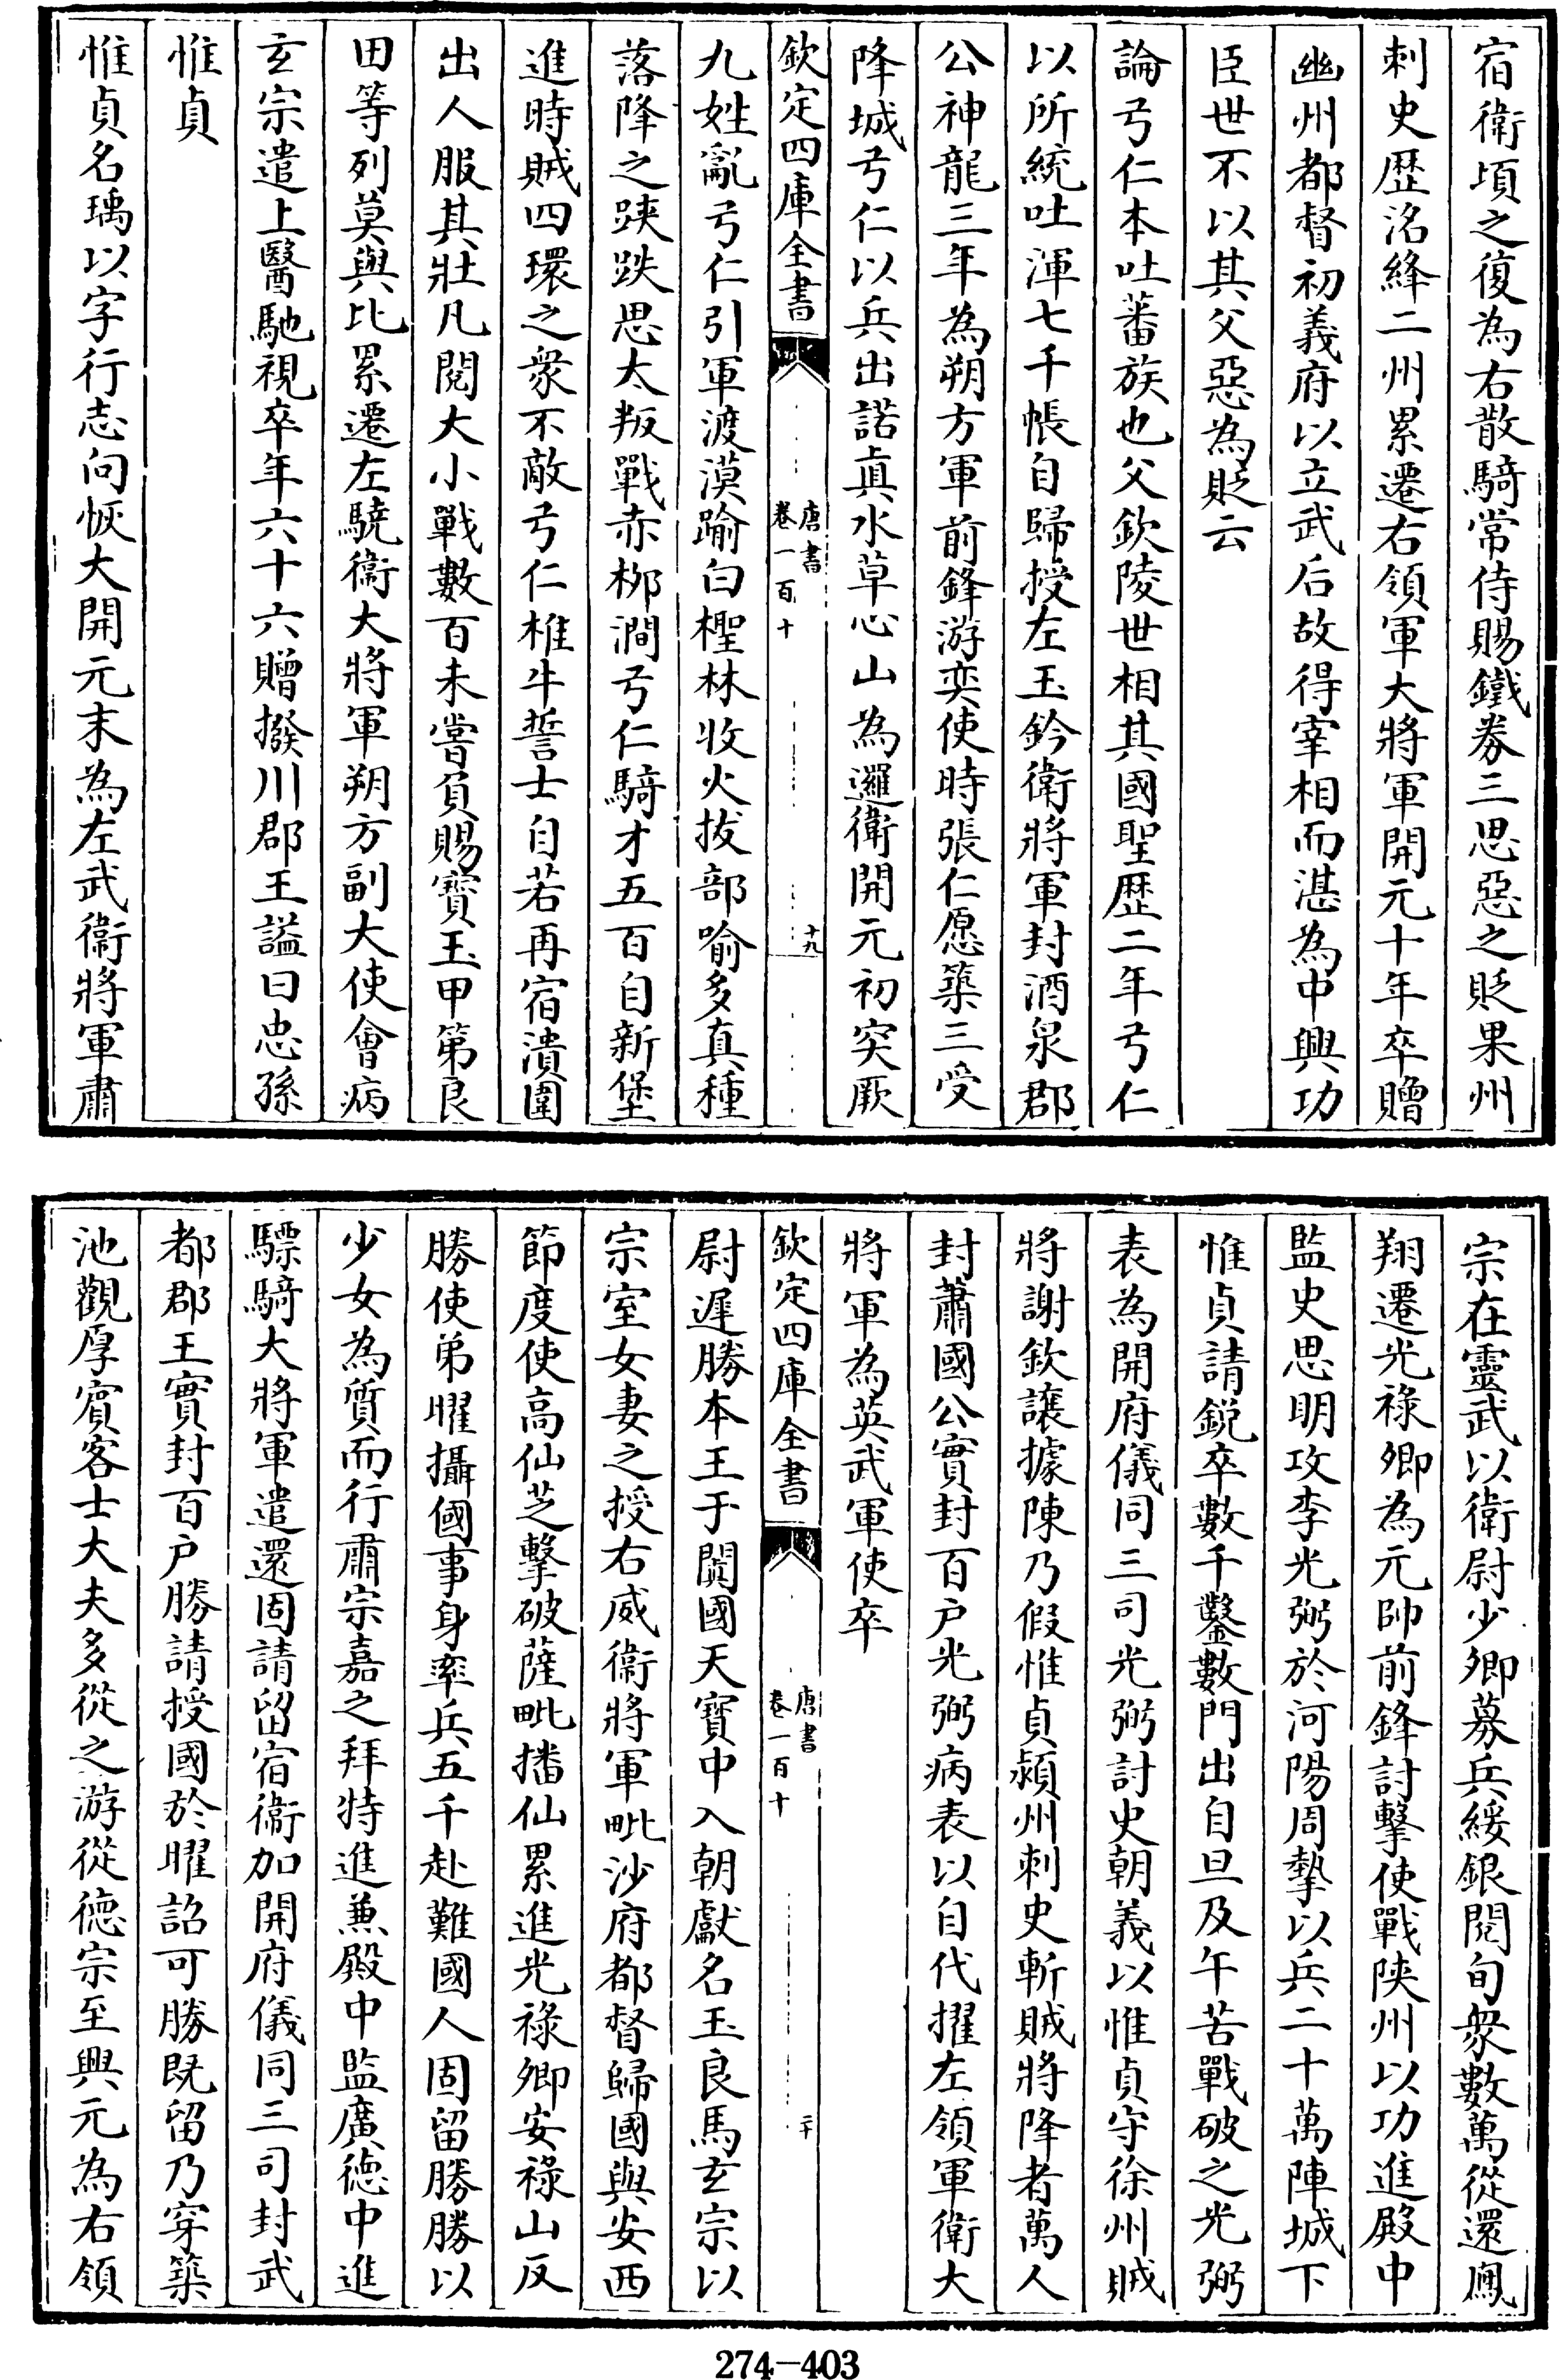 宿衛頃之復為右散騎常侍賜鐵券三思惡之貶果州
刺史歴洺絳二州累遷右領軍大將軍開元十年卒贈
幽州都督初義府以立武后故得宰相而湛為中興功
臣世不以其父惡為貶云
論弓仁本吐蕃族也父欽陵世相其國聖歴二年弓仁
以所統吐渾七千帳自歸授左玉鈐衛將軍封酒泉郡
公神龍三年為朔方軍前鋒游奕使時張仁愿築三受
降城弓仁以兵出諾真水草心山為邏衛開元初突厥
欽定四庫全書
唐書
卷一百十
十九
九姓亂弓仁引軍渡漠踰白檉林收火拔部喻多真種
落降之跌跌思太叛戰赤桞澗弓仁騎才五百自新堡
進時賊四環之衆不敵弓仁椎牛誓士自若再宿潰圍
出人服其壯凡閱大小戰數百未嘗負賜寳玉甲第良
田等列莫與比累遷左驍衞大將軍朔方副大使會病
玄宗遣上醫馳視卒年六十六贈撥川郡王謚曰忠孫
惟貞
惟貞名瑀以字行志向恢大開元末為左武衞將軍肅
宗在靈武以衛尉少卿募兵綏銀閱旬衆數萬從還鳳
翔遷光禄卿為元帥前鋒討擊使戰陜州以功進殿中
監史思明攻李光弼於河陽周摯以兵二十萬陣城下
惟貞請鋭卒數千鑿數門出自旦及午苦戰破之光弼
表為開府儀同三司光弼討史朝義以惟貞守徐州賊
將謝欽讓據陳乃假惟貞潁州刺史斬賊將降者萬人
封蕭國公實封百戶光弼病表以自代擢左領軍衛大
將軍為英武軍使卒
欽定四庫全書
唐書
卷一百十
二十
尉遲勝本王于闐國天寳中入朝獻名玉良馬玄宗以
宗室女妻之授右威衞將軍毗沙府都督歸國與安西
節度使高仙芝擊破薩毗播仙累進光禄卿安禄山反
勝使弟曜攝國事身率兵五千赴難國人固留勝勝以
少女為質而行肅宗嘉之拜特進兼殿中監廣德中進
驃騎大將軍遣還固請留宿衞加開府儀同三司封武
都郡王實封百户勝請授國於曜詔可勝既留乃穿築
池觀厚賓客士大夫多從之游從德宗至興元為右領
274—403